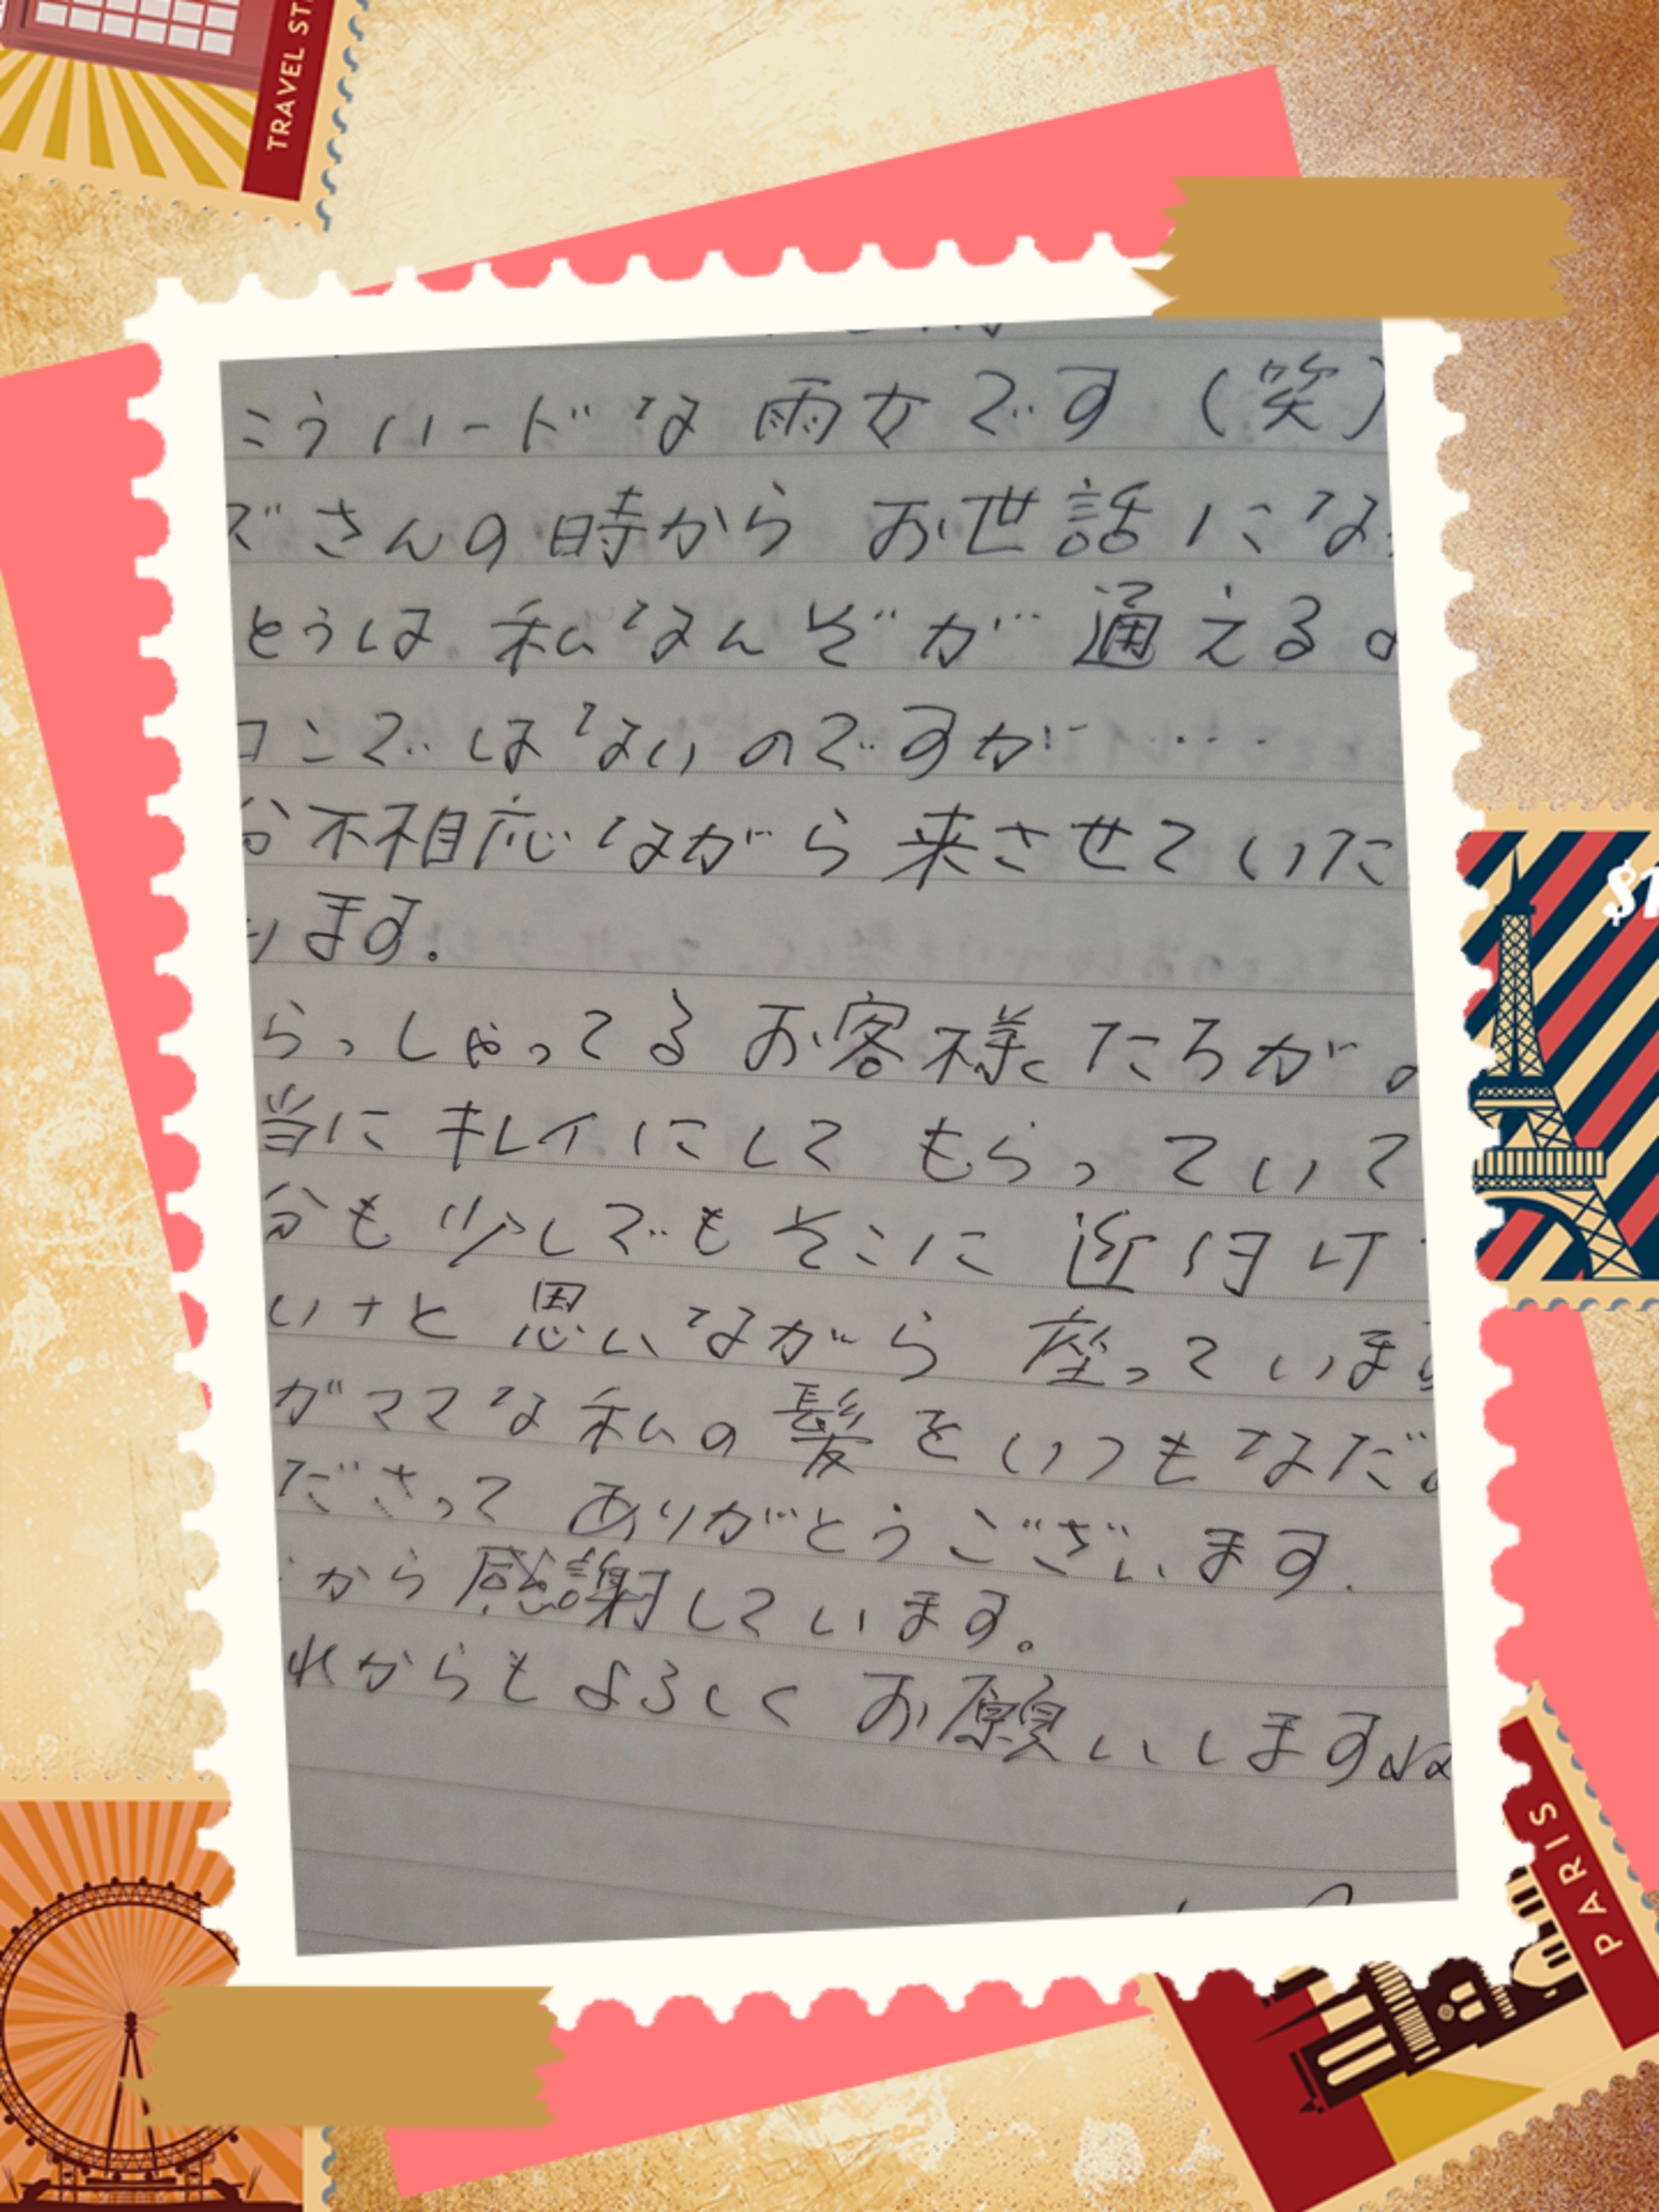 TRAVEL ST
こうハードな雨女です（笑）
ズさんの時から お世話にな
とうは 私なんぞが 通える
コンではないのですが・・・
分不相応ながら 来させていた
います.
らっしゃってる お客様たちが
当に キレイにして もらっていて
分も 少しでも そこに 近付け
いナと 思いながら 座っていま
がママな私の髪を いつもなだ
ださって ありがとうございます.
から 感謝しています。
れからもよろしく お願いしますね
$1
PARIS